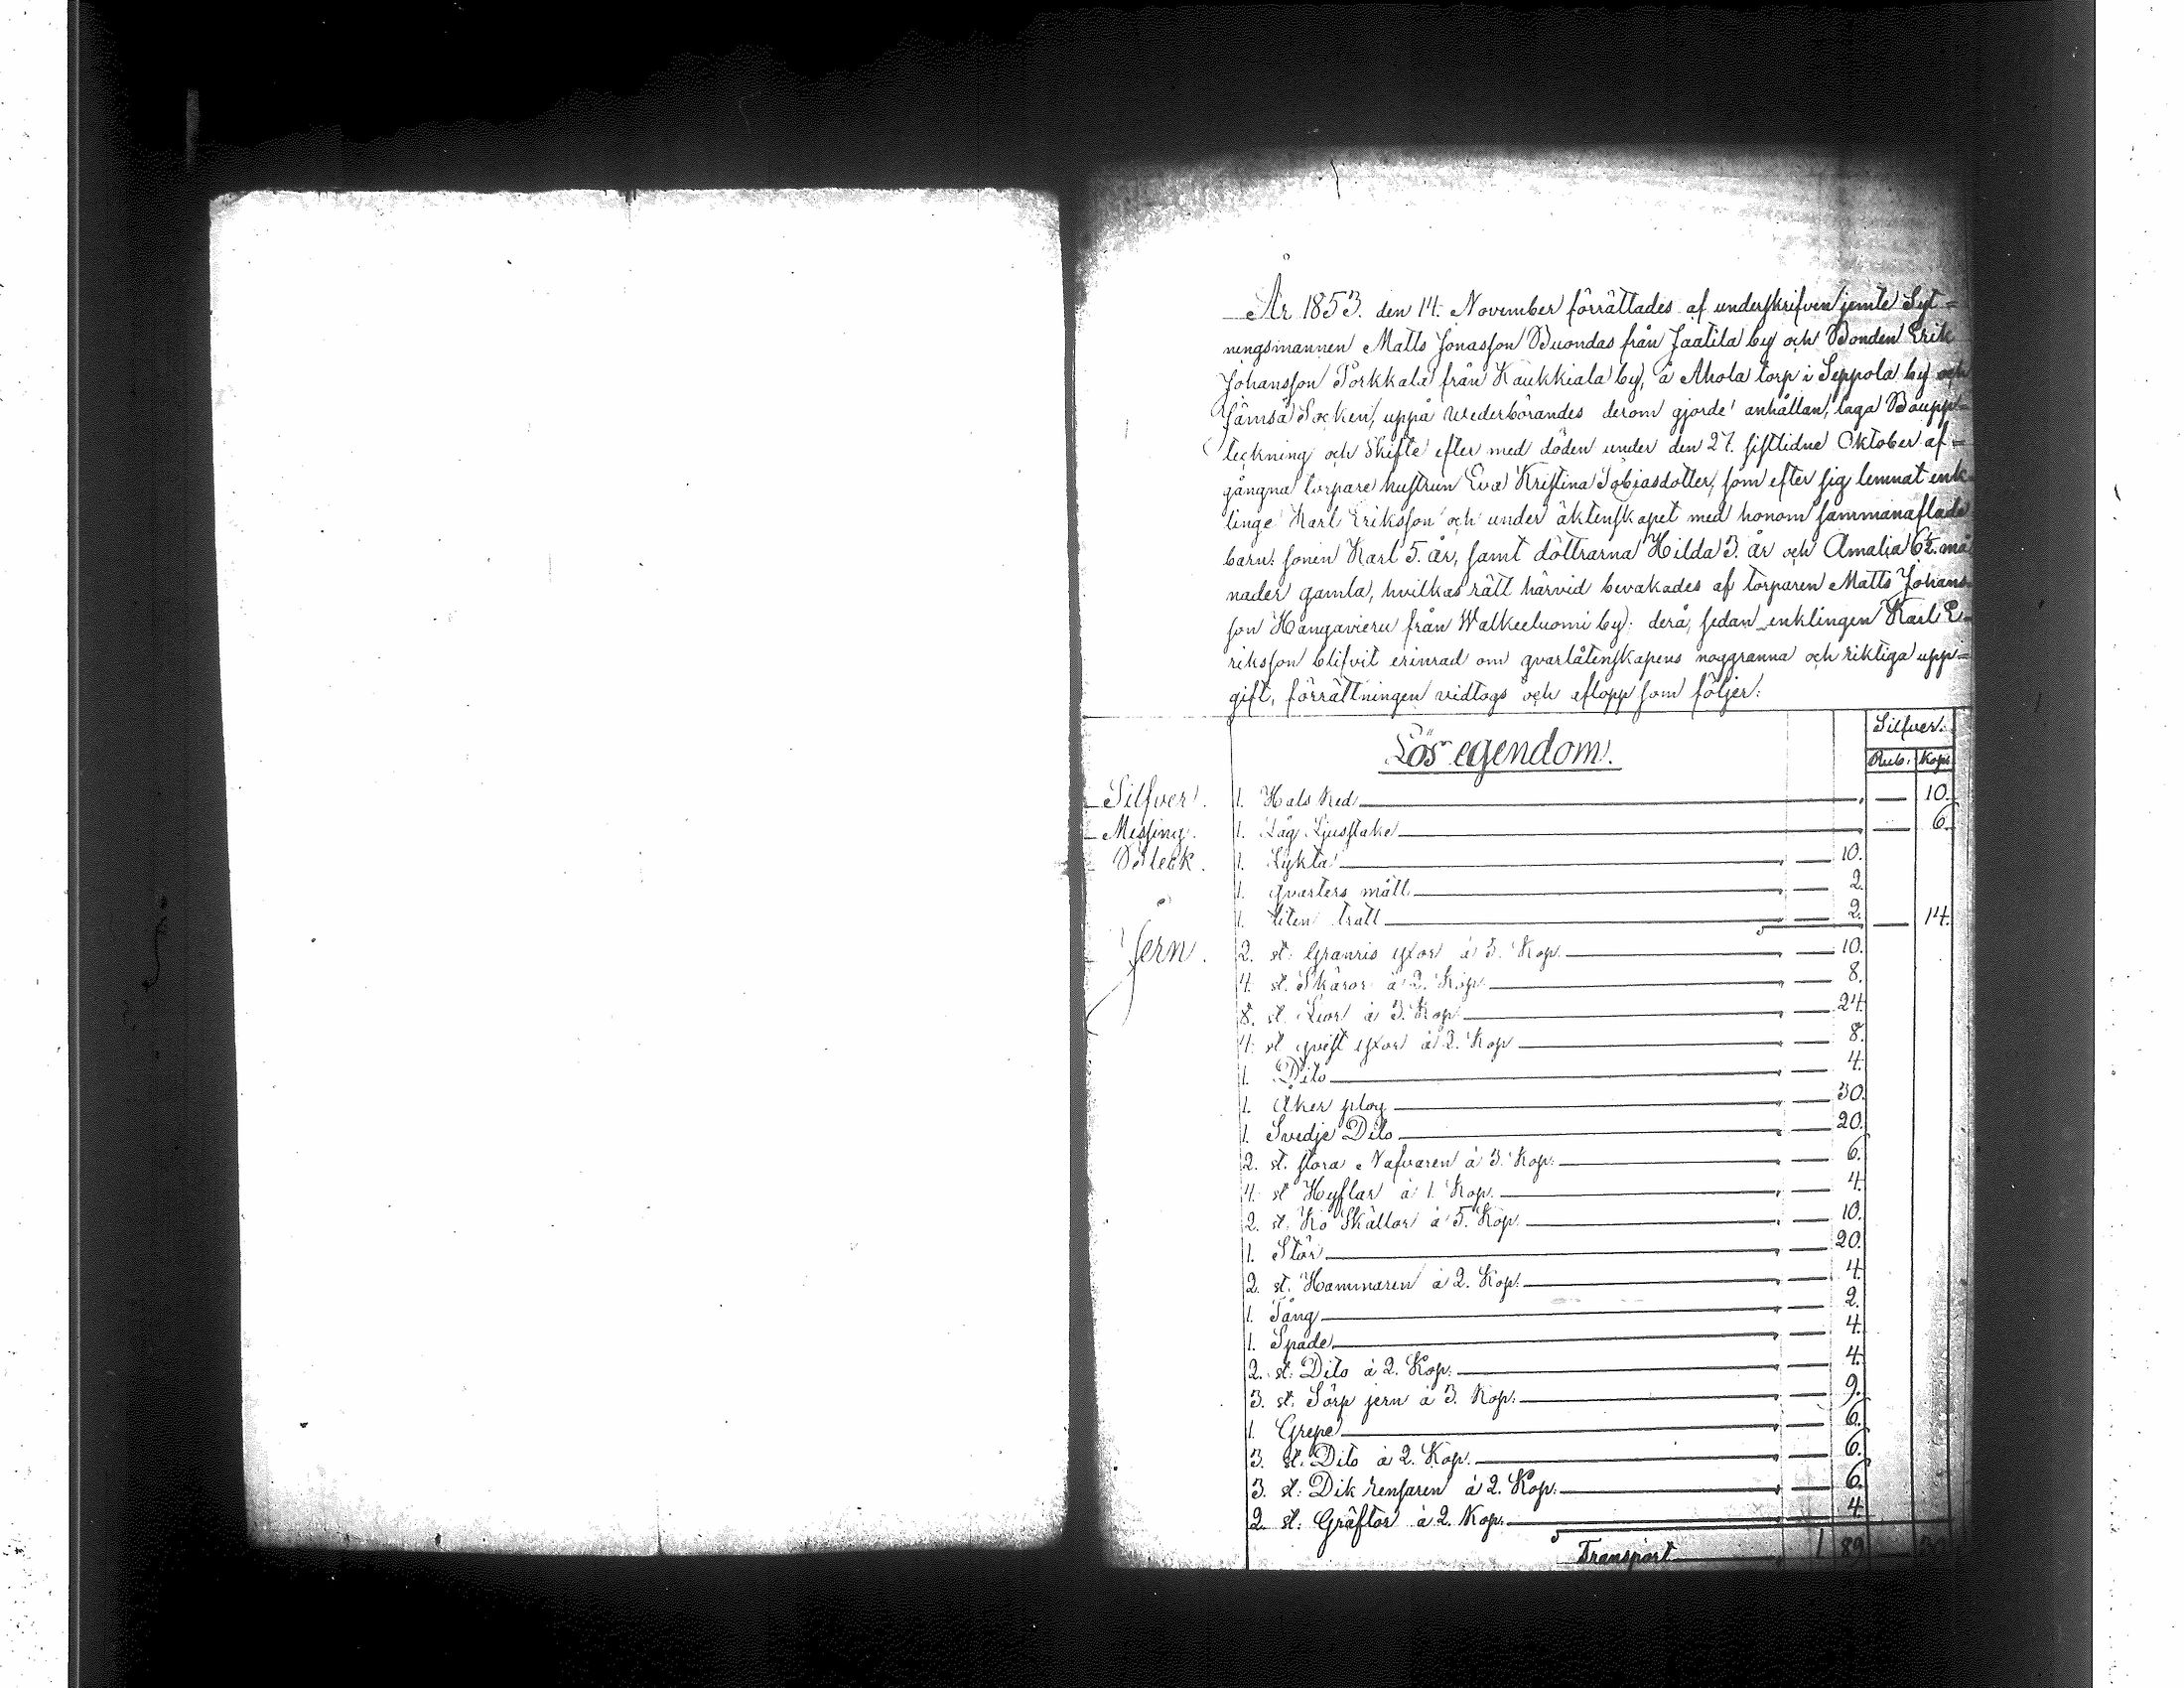 År 1853. den 14. November förrättades af underskrifven jemte Syt=
ningsmannen Matts Jonasson Buondas från Jaatila by och Bonden Erik
Johansson Torkkala från Kaukkiala by, å Ahola torp i Seppola by och
Jämsä Socken, uppå wederbörandes derom gjorde anhållan, laga Boupp=
teckning och Skifte efter med döden under den 27. sistlidne Oktober af=
gångna torpare hustrun Eva Kristina Tobiasdotter, som efter sig lemnat enk
linge Karl Eriksson och under äktenskapet med honom sammanaflade
barn: sonen Karl 5. år, samt döttrarna Hilda 3. år och Amalia må
nader gamla, hvilkas rätt härvid bevakades af torparen Matts Johans
son Hangavieru från Walkeeluomi by: derå, sedan enklingen Karl E=
riksson blifvit erinrad om qvarlåtenskapens noggranna och riktiga upp=
gift, förrättningen vidtogs och aflopp som följer:
Lös egendom.
Silfver.
Rub. Kop.
Silfver. 1. Hals Ked — 10.
Messing. 1. Låg Ljusstake — 6.
Bleck. 1. Lykta — 10.
1. qvarters mått — 2.
1. liten tratt — 2. — 14.
Jern. 2. st: Granris yxor à 5. Kop. — 10.
4. st. Skäror à 2. Kop. — 8.
8. st. Liar à 3. Kop. — 24.
4. st qvist yxor à 2. Kop — 8.
1. Dito — 4.
1. Åker plog — 30.
1. Svedje Dito — 20.
2. st. stora Nafvaren à 3. Kop. — 6.
4. st Hyflar à 1. Kop. — 4.
2. st. Ko Skällor à 5. Kop. — 10.
1. Stör — 20.
2. st. Hammaren à 2. Kop. — 4.
1. Tång — 2.
1. Spade — 4.
2. st: Dito à 2. Kop. — 4.
3. st. Sörp jern à 3. Kop: — 9.
1. Grepe — 6.
3. st. Dito à 2. Kop. — 6.
3. st: Dik rensaren à 2. Kop: — 6.
2. st: Gräftor à 2. Kop: — 4.
Transport — 1 89 — 30